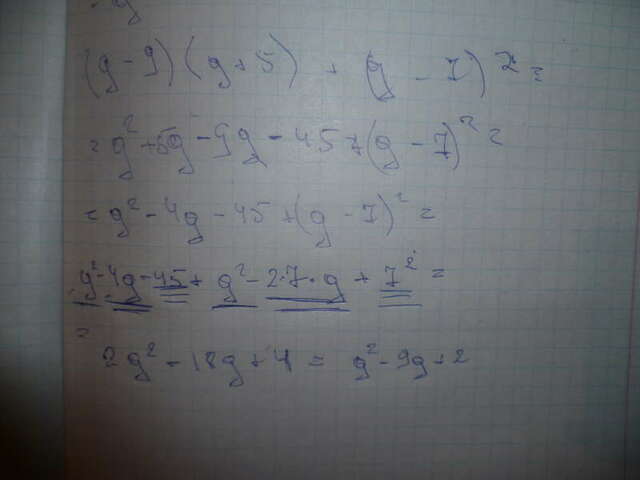 (g - 9)(g + 5) + (g - 7)² =
= g² + 5g - 9g - 45 + (g - 7)² =
= g² - 4g - 45 + (g - 7)² =
g² - 4g - 45 + g² - 2·7·g + 7² =
=
= 2g² - 18g + 4 = g² - 9g + 2